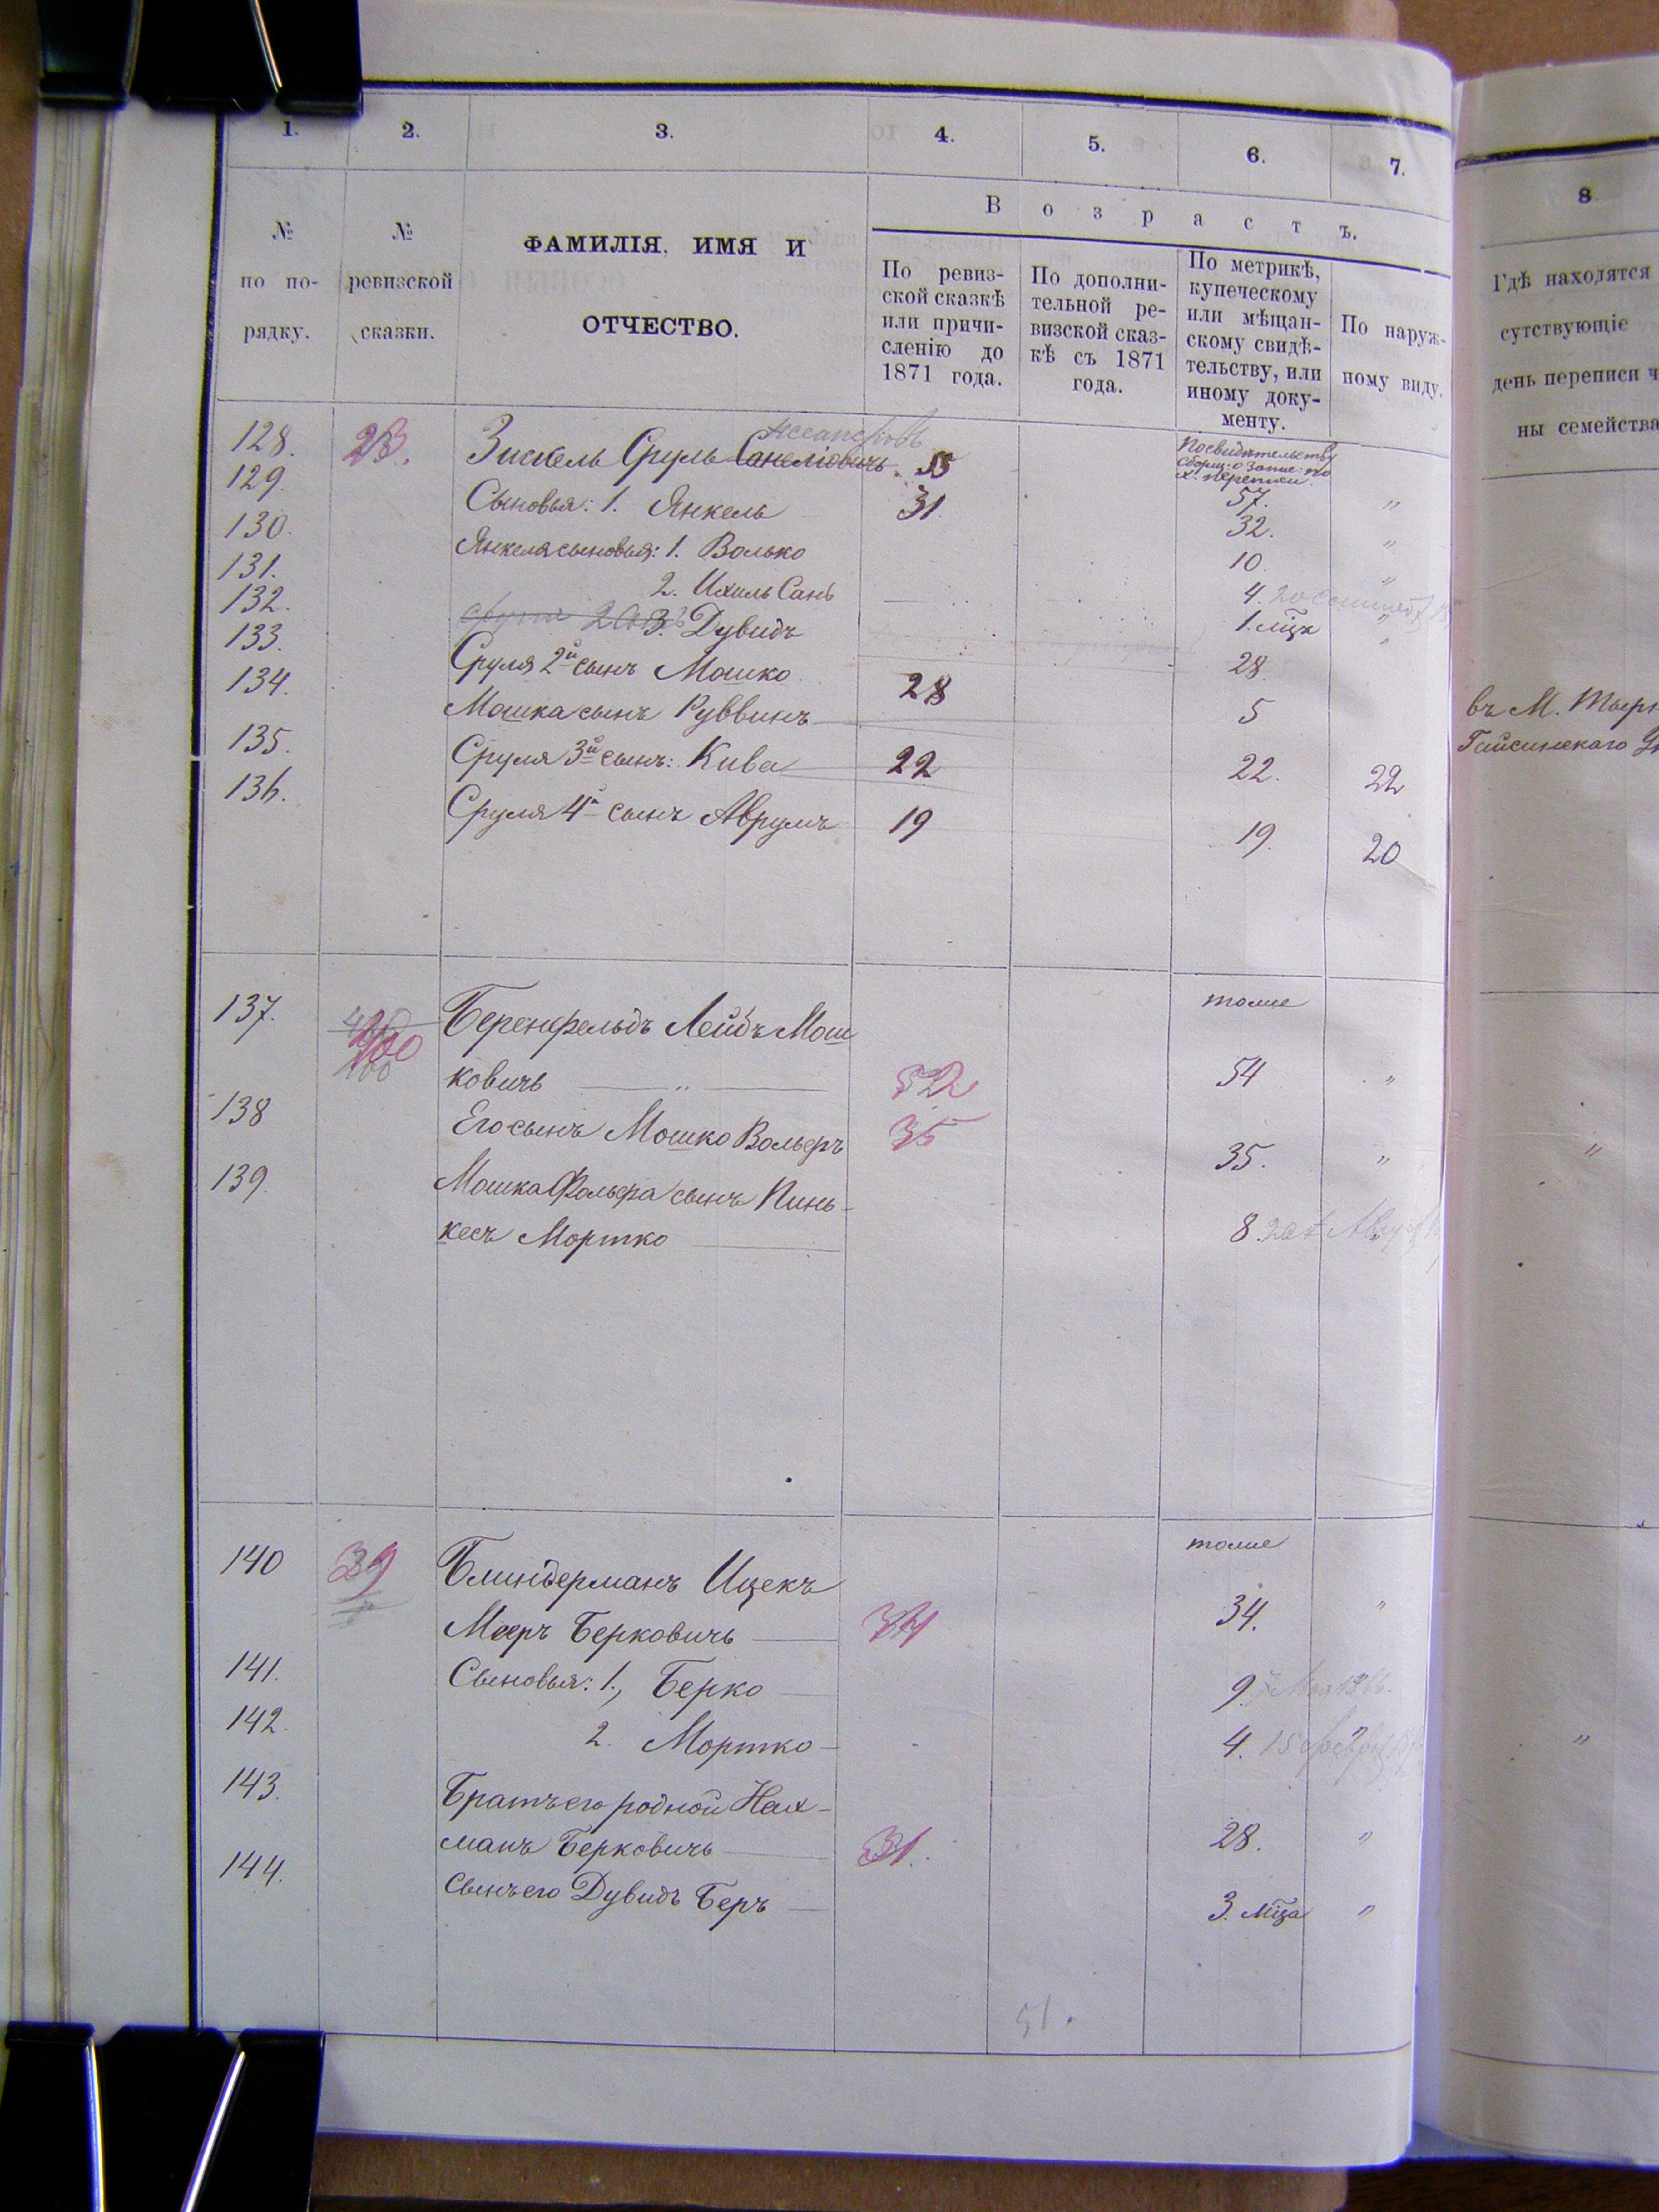 1. 2. 3. 4. 5. 6. 7. 8
Возрастъ.
№ по порядку.
№ ревизской сказки.
ФАМИЛІЯ, ИМЯ И
ОТЧЕСТВО.
По ревиз-
ской сказкѣ
или причи-
сленію до
1871 года.
По дополни-
тельной ре-
визской сказ-
кѣ съ 1871
года.
По метрикѣ,
купеческому
или мѣщан-
скому свидѣ-
тельству, или
иному доку-
менту.
По наруж-
ному виду.
Гдѣ находятся
сутствующіе
день переписи ч
ны семейства
128. 23. Зискель Сруль 55 57. "
129. Сыновья: 1. Янкель 31 32. "
130. Янкеля сыновья: 1. Волько 10. "
131. 2. Ихиль Сань 4. "
132. 3. Дувидъ 1. мѣц "
133. Сруля 2й сынъ Мошко 28 28.
134. Мошка сынъ Руввинъ 5
135. Сруля 3й сынъ: Кива 22 22. 22
136. Сруля 4й сынъ Аврумъ 19 19. 20
въ М.
Гайсинскаго
137. Беренфельдъ Лейбъ Мош тоже
ковичъ 52 54 "
138 Его сынъ Мошко Вольфъ 35 35. "
139. Мошка Фольфа сынъ Пинь-
кесъ Мортко 8. "
140 39 Блиндерманъ Ицекъ тоже
Мееръ Берковичъ 34 34. "
141. Сыновья: 1., Берко 9.
142. 2. Мортко 4. "
143. Братъ его родной Нах-
манъ Берковичъ 31. 28. "
144. Сынъ его Дувидъ Беръ 3. мѣца "
51.